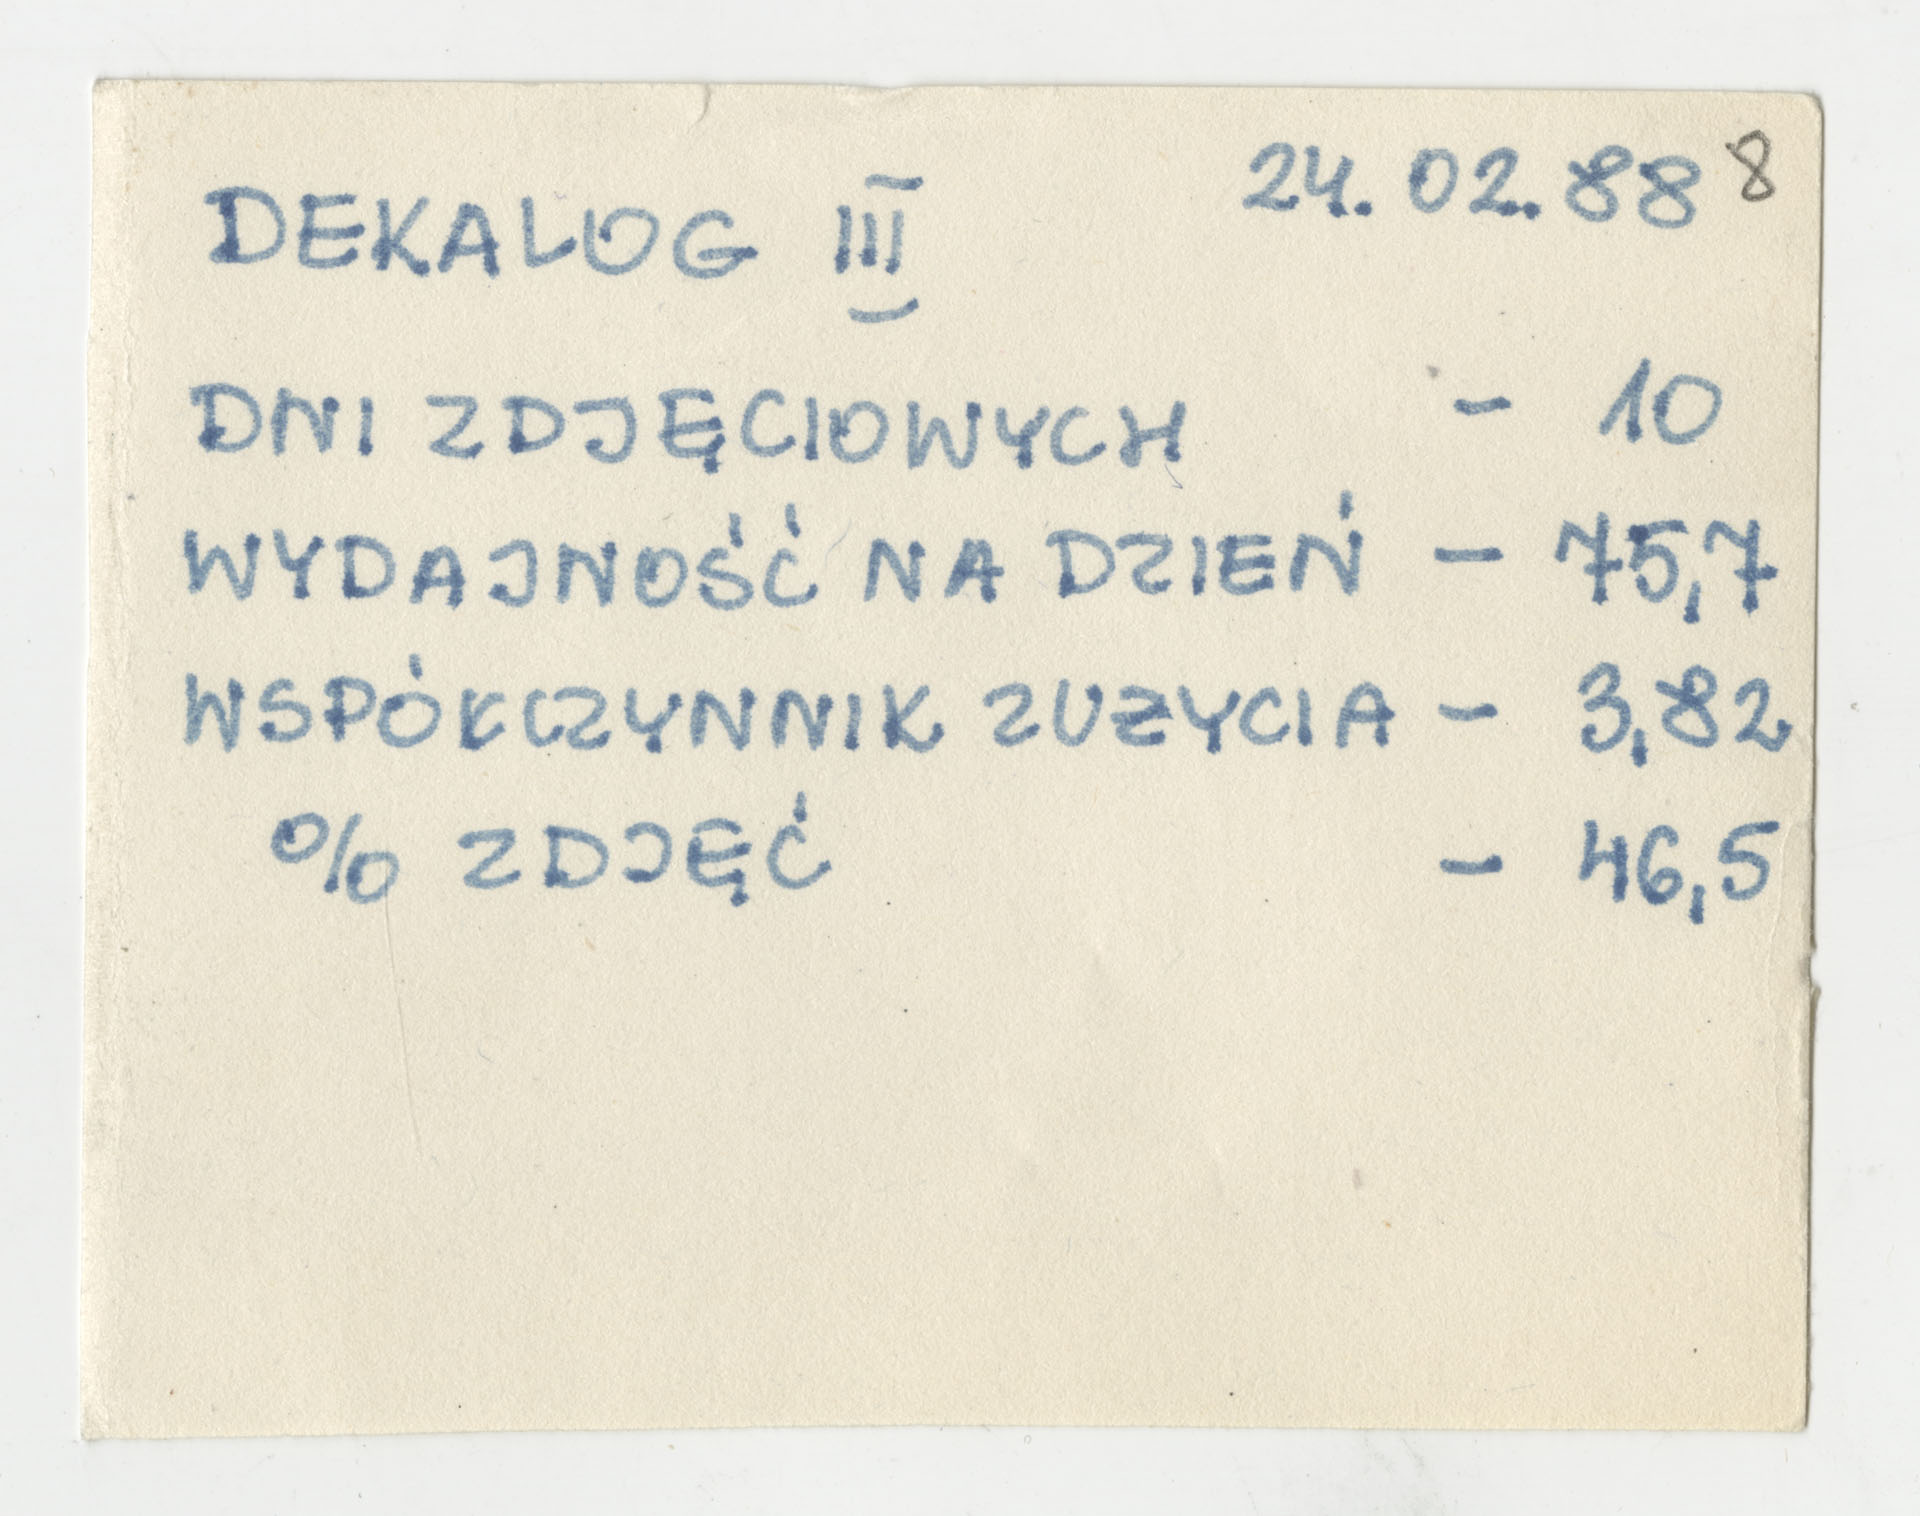 DEKALOG III 24.02.88 8
DNI ZDJĘCIOWYCH - 10
WYDAJNOŚĆ NA DZIEŃ - 75,7
WSPÓŁCZYNNIK ZUŻYCIA - 3,82
% ZDJĘĆ - 46,5